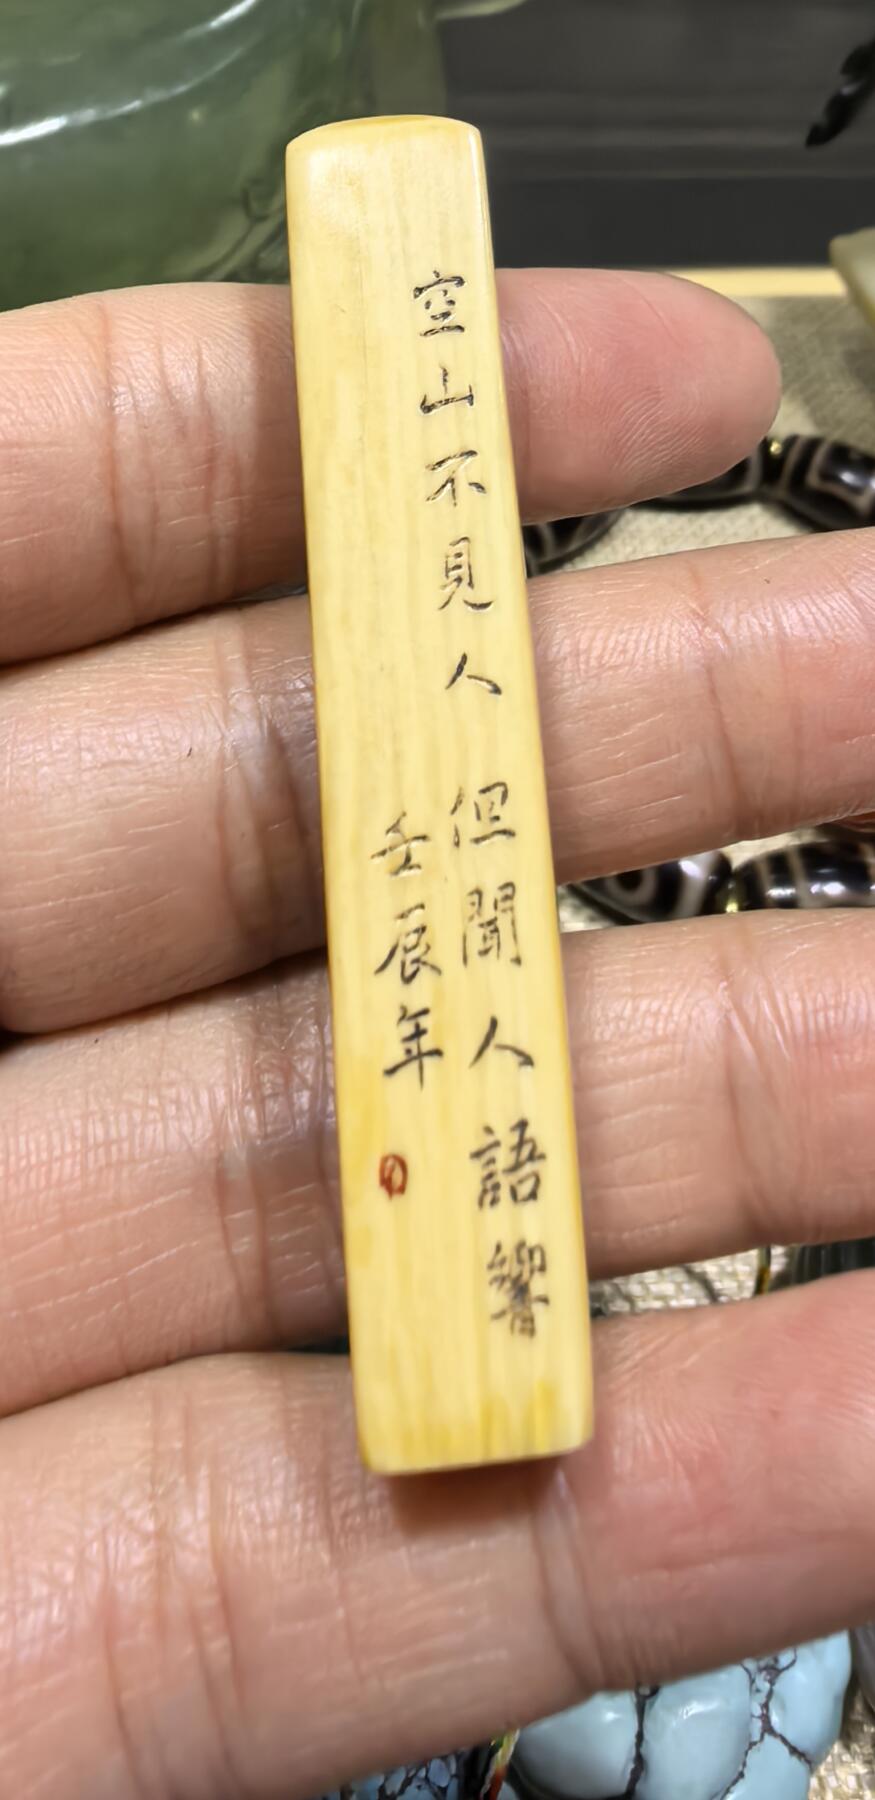 空山不見人但聞人語響
壬辰年